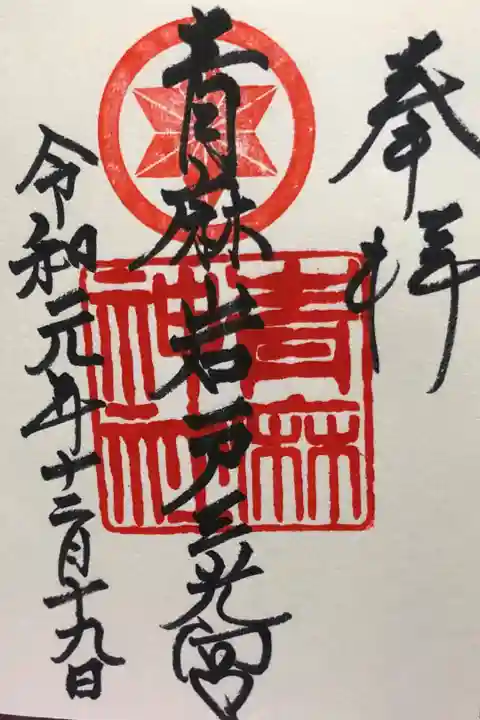 奉拝
青麻岩戸三光宮
令和元年十二月十九日
青麻神社